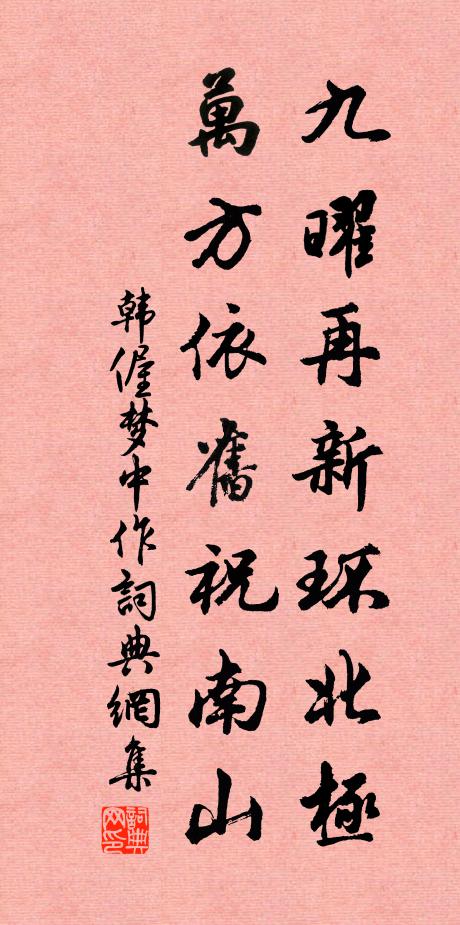 九曜再新环北極
萬方依舊祝南山
韩偓梦中作詞典網集
詞典网印